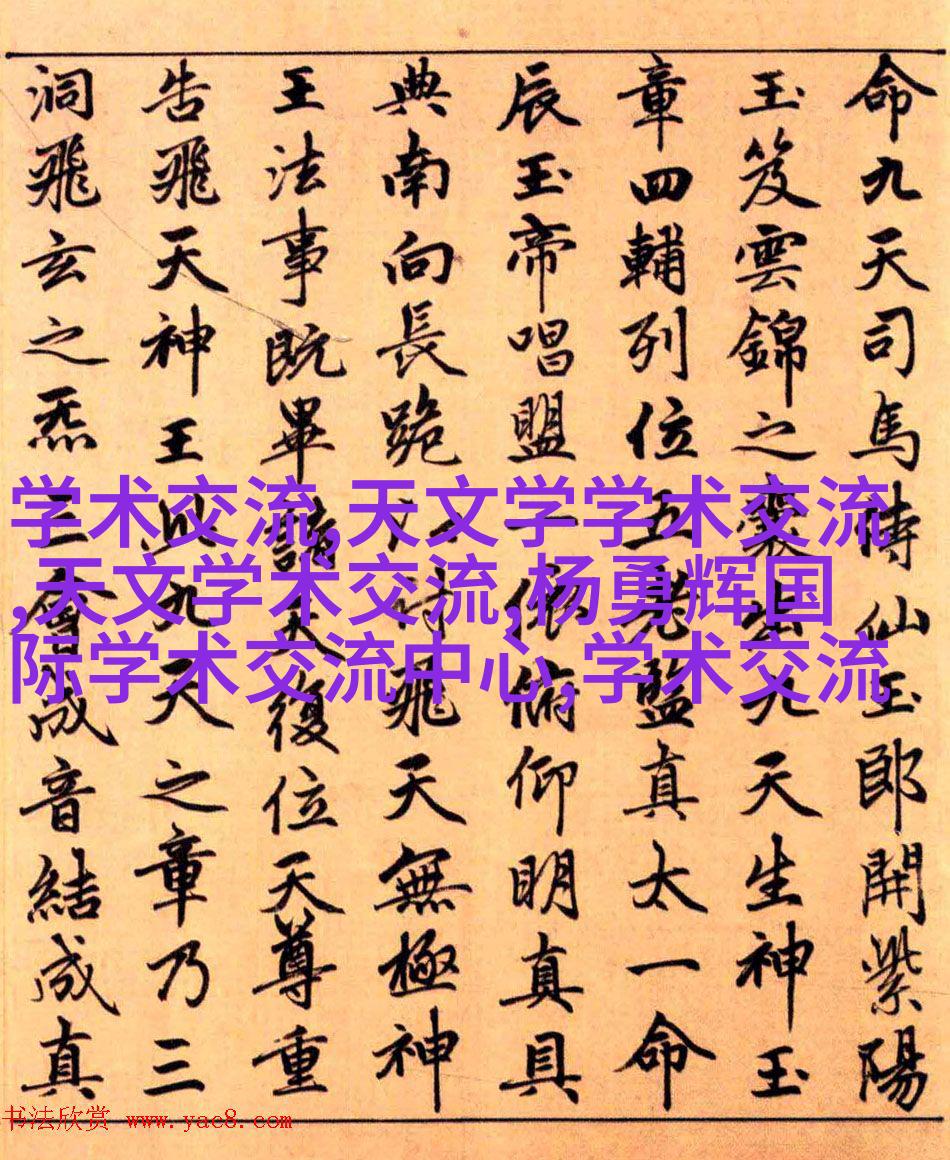 命九天司馬侍仙玉郎開紫陽
玉笈雲錦之囊出九天生神玉
章四輔列位五老監真太一命
辰玉帝唱盟一依俯仰明真具
典南向長跪以付飛天無極神
王法事既畢諸天復位天尊重
告飛天神王此九天之章乃三
洞飛玄之炁三會成音結成真
学术交流,天文学学术交流
,天文学术交流,杨勇辉国
际学术交流中心,学术交流
书法欣赏 www.yac8.com